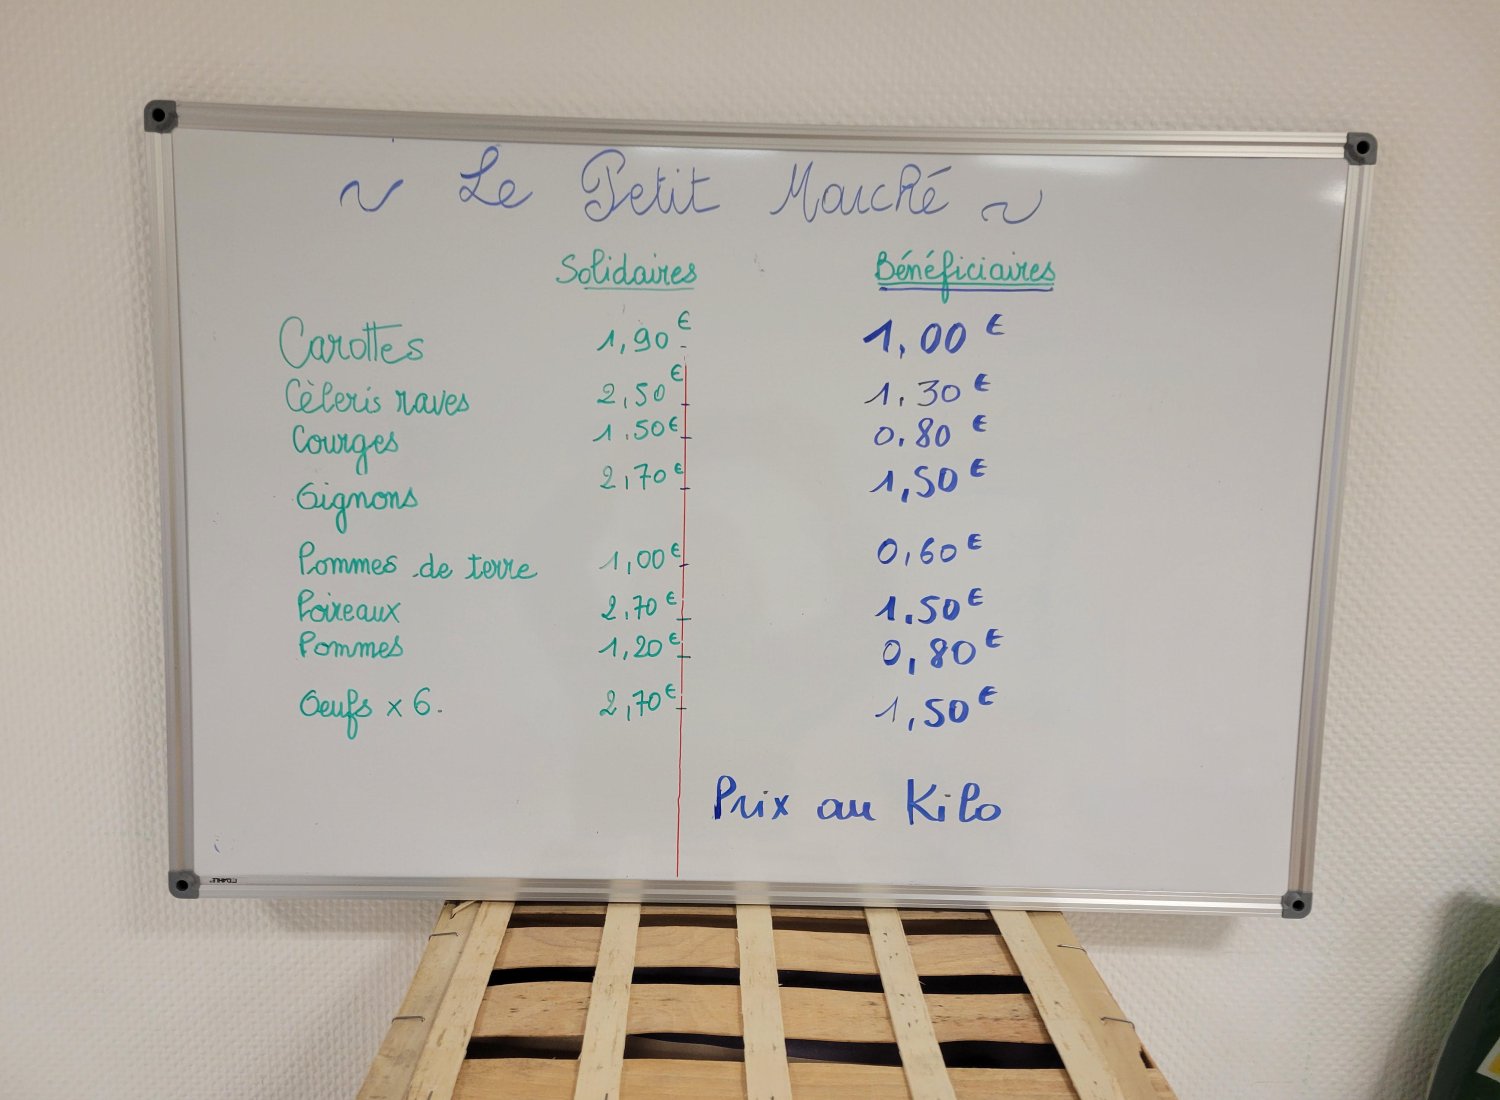 ~ Le Petit Marché ~
Solidaires Bénéficiaires
Carottes 1,90 € 1,00 €
Cèleris raves 2,50 € 1,30 €
Courges 1.50 € 0,80 €
Oignons 2,70 € 1,50 €
Pommes de terre 1,00 € 0,60 €
Poireaux 2,70 € 1.50 €
Pommes 1,20 € 0,80 €
Oeufs x 6. 2,70 € 1,50 €
Prix au Kilo